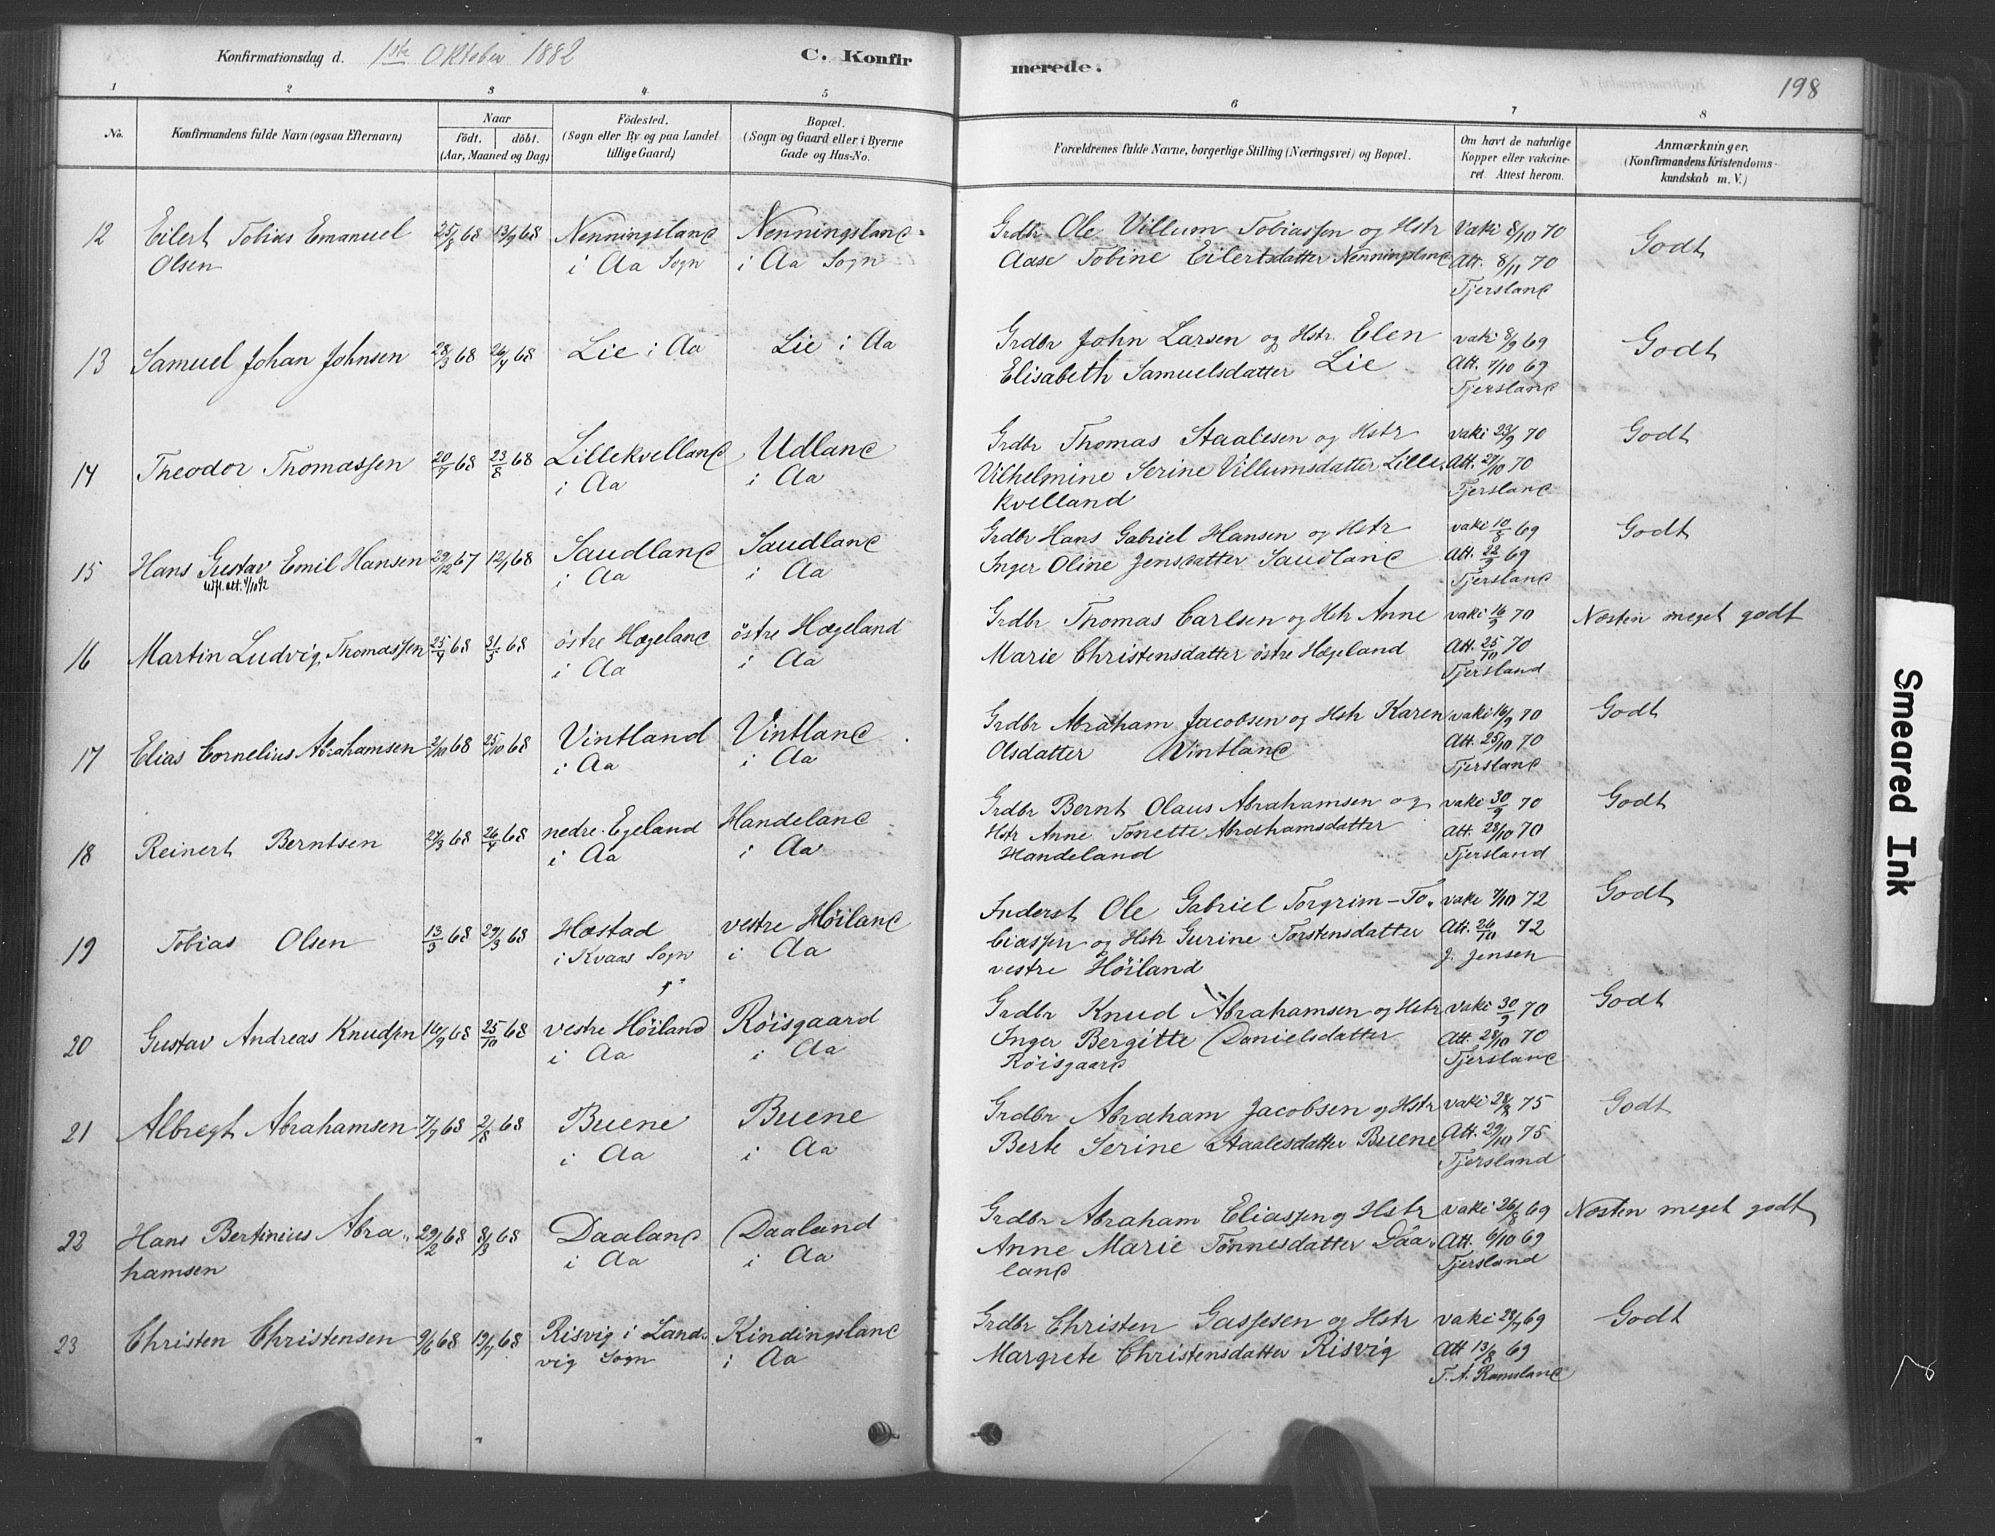 Konfirmationsdag d. 1ste Oktober 1882
C. Konfirmerede.
198
1 2 3 4 5 6 7 8
No.
Konfirmandens fulde Navn (ogsaa Efternavn)
Naar
født. døbt.
(Aar, Maaned og Dag)
Fødested.
(Sogn eller By og paa Landet
tillige Gaard)
Bopæl.
(Sogn og Gaard eller i Byerne
Gade og Hus-No.
Forældrenes fulde Navne, borgerlige Stilling (Næringsvei) og Bopæl.
Om havt de naturlige
Kopper eller vakcine-
ret. Attest herom.
Anmærkninger.
(Konfirmandens Kristendoms-
kundskab m. V.)
12 Eilert Tobias Emanuel 25/8 68 13/9 68 Nenningsland Nenningsland Grdbr Ole Villum Tobiassen og Hstr Vaki 8/10 70 Godt
Olsen i Aa Sogn i Aa Sogn Aase Tobine Eilertsdatter Nenningsland Att. 8/11 70
Tjersland
13 Samuel Johan Johnsen 28/3 68 26/4 68 Lie i Aa Lie i Aa Grdbr John Larsen og Hstr. Elen vaki 8/9 69 Godt
Elisabeth Samuelsdatter Lie Att. 7/10 69
Tjersland
14 Theodor Thomassen 20/7 68 23/8 68 Lillekvelland Udland Grdbr Thomas Staalesen og Hstr vaki 23/9 70 Godt
i Aa i Aa Vilhelmine Serine Villumsdatter Lille- Att. 27/10 70
kvelland Tjersland
15 Hans Gustav Emil Hansen 29/12 67 12/1 68 Saudland Saudland Grdbr Hans Gabriel Hansen og Hstr vaki 10/8 69 Godt
i Aa i Aa Inger Oline Jensdatter Saudland Att. 22/9 69
Tjersland
16 Martin Ludvig Thomassen 25/4 68 31/5 68 östre Hægeland östre Hægeland Grdbr Thomas Carlsen og Hstr Anne vaki 16/9 70 Næsten meget godt
i Aa i Aa Marie Christensdatter östre Hægeland Att. 25/10 70
Tjersland
17 Elias Cornelius Abrahamsen 2/10 68 25/10 68 Vintland Vintland Grdbr Abraham Jacobsen og Hstr Karen vaki 16/9 70 Godt
i Aa i Aa Olsdatter Vintland Att. 25/10 70
Tjersland
18 Reinert Berntsen 27/3 68 26/4 68 nedre Egeland Handeland Grdbr Bernt Olaus Abrahamsen og vaki 30/9 70 Godt
i Aa i Aa Hstr Anne Tonette Abrahamsdatter Att. 28/10 70
Handeland Tjersland
19 Tobias Olsen 13/3 68 29/3 68 Hæstad vestre Höiland Inderst Ole Gabriel Torgrim-To- vaki 7/10 72 Godt
i Kvaas Sogn i Aa biassen og Hstr Gurine Torstensdatter Att. 26/10 72
vestre Höiland J. Jensen
20 Gustav Andreas Knudsen 16/9 68 25/10 68 vestre Höiland Röisgaard Grdbr Knud Abrahamsen og Hstr vaki 30/9 70 Godt
i Aa i Aa Inger Bergitte Danielsdatter Att. 28/10 70
Röisgaard Tjersland
21 Albregt Abrahamsen 7/7 68 2/8 68 Buene Buene Grdbr Abraham Jacobsen og Hstr vaki 28/8 75 Godt
i Aa i Aa Berte Serine Staalesdatter Buene Att. 29/10 75
Tjersland
22 Hans Bertinius Abra- 29/2 68 8/3 68 Daaland Daaland Grdbr Abraham Eliassen og Hstr vaki 26/8 69 Næsten meget godt
hamsen i Aa i Aa Anne Marie Tönnesdatter Daa- Att. 6/10 69
land Tjersland
23 Christen Christensen 9/6 68 19/7 68 Risvig i Land- Kindingsland Grdbr Christen Gassesen og Hstr vaki 28/7 69 Godt
vig Sogn i Aa Margrete Christensdatter Risvig Att 13/8 69
T. A. Ramsland
Smeared Ink